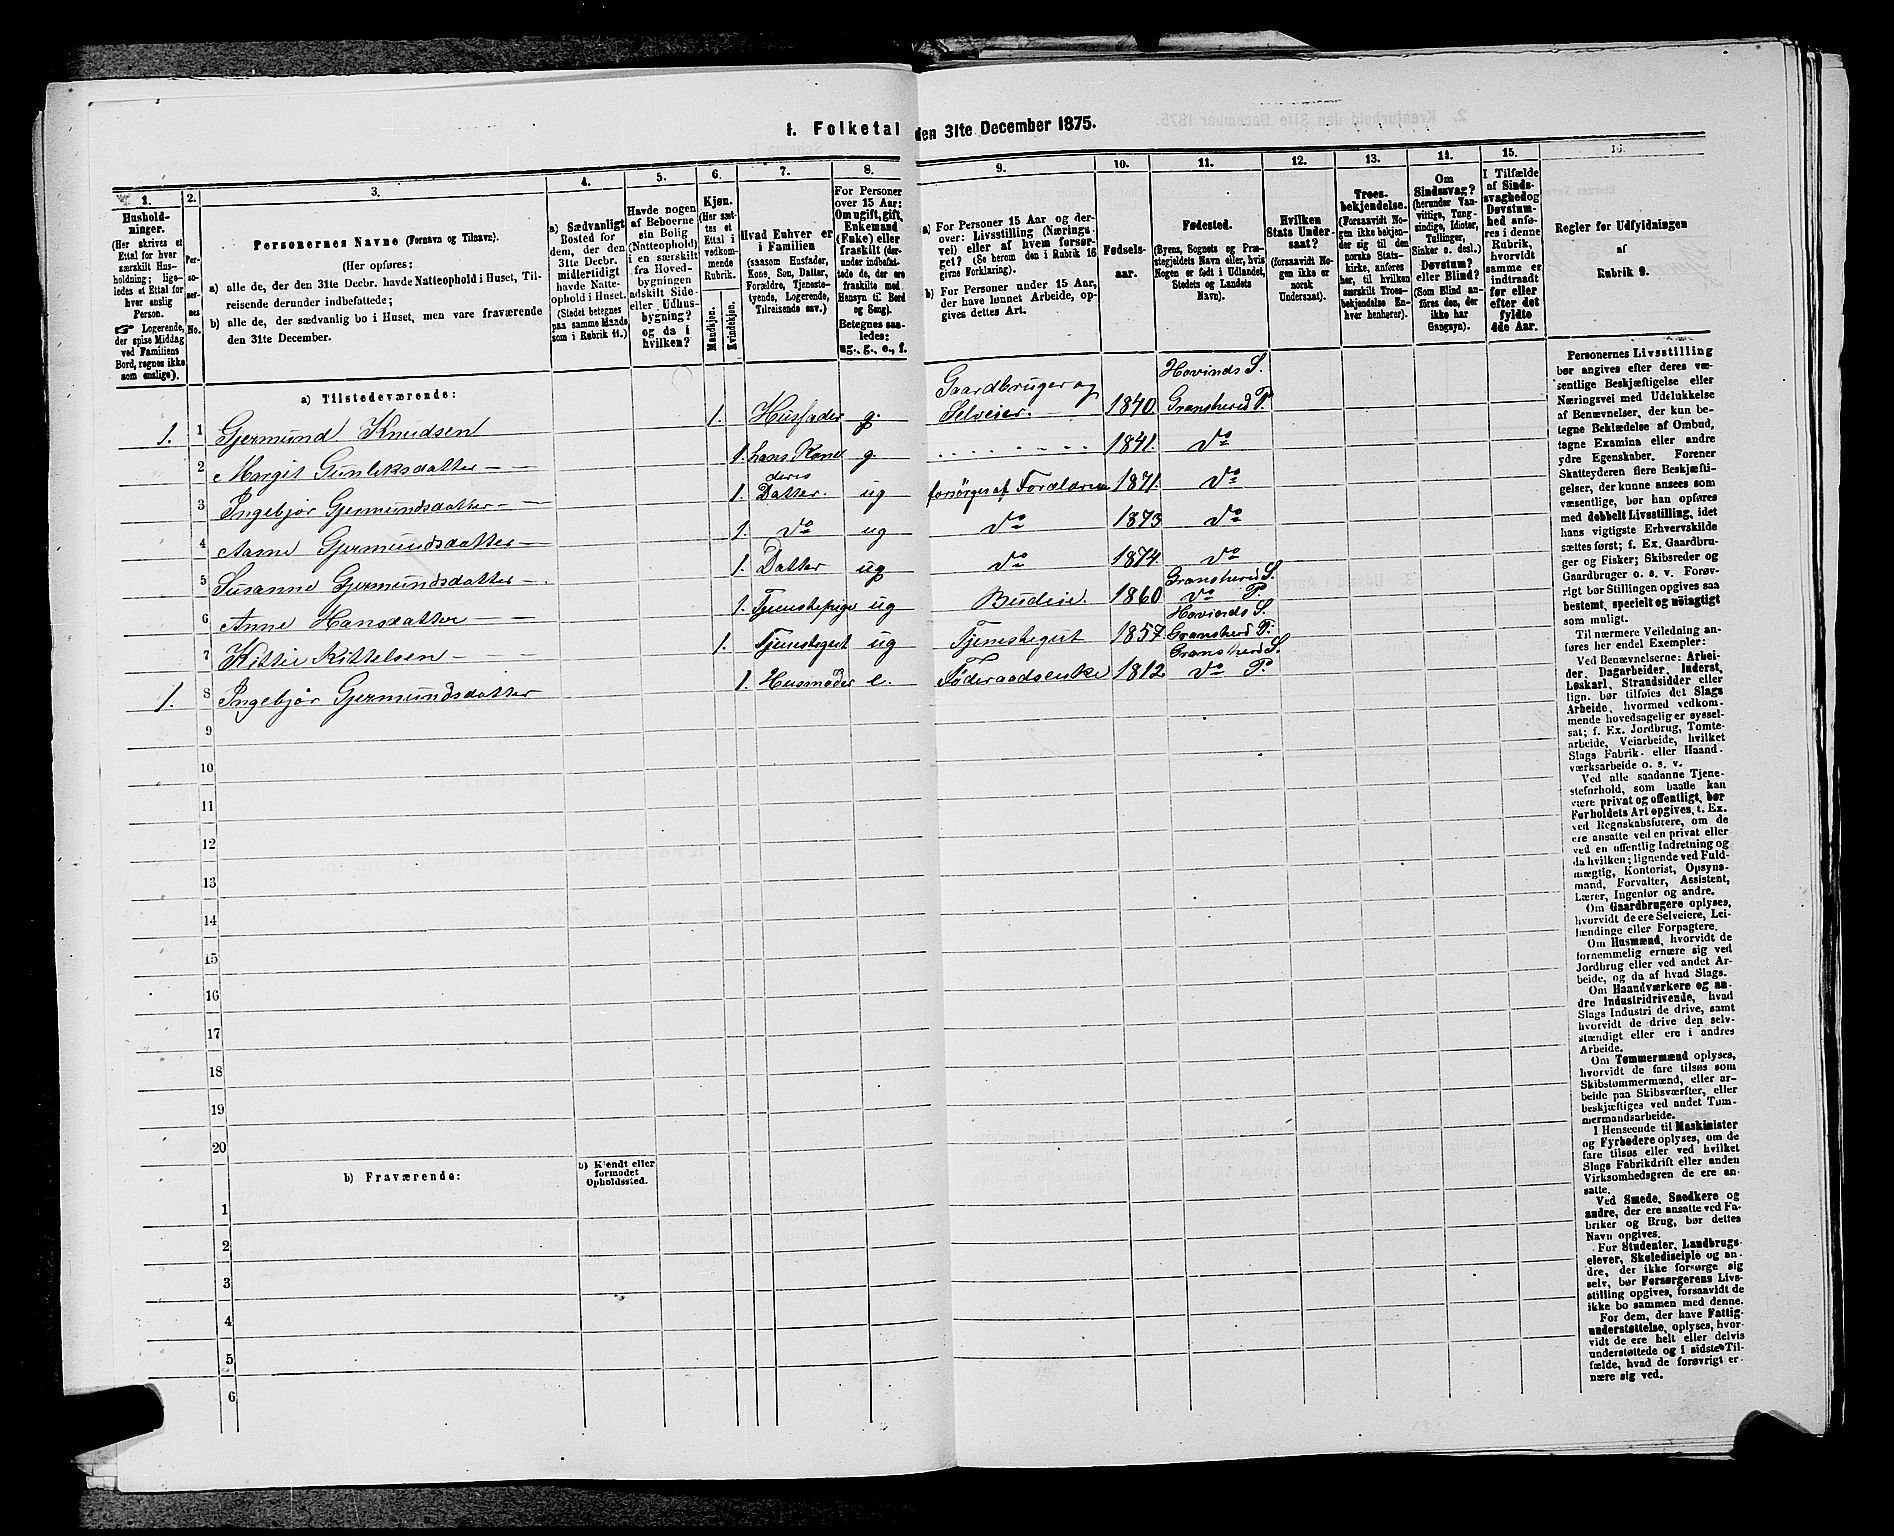 1. Folketal den 31te December 1875.
1.
Hushold-
ninger.
(Her skrives et
Ettal for hver
særskilt Hus-
holdning; lige-
ledes et Ettal for
hver enslig
Person.
☞ Logerende,
der spise Middag
ved Familiens
Bord, regnes ikke
som enslige).
2.
Per-
so-
ner-
nes
No.
3.
Personernes Navne (Fornavn og Tilnavn).
(Her opføres:
a) alle de, der den 31te Decbr. havde Natteophold i Huset, Til-
reisende derunder indbefattede;
b) alle de, der sædvanlig bo i Huset, men vare fraværende
den 31te December.
4.
a) Sædvanligt
Bosted for
dem, der den
31te Decbr.
midlertidigt
havde Natte-
ophold i Huset.
(Stedet betegnes
paa samme Maade
som i Rubrik 11.)
5.
Havde nogen
af Beboerne
sin Bolig
(Natteophold)
i en særskilt
fra Hoved-
bygningen
adskilt Side-
eller Udhus-
bygning?
og da i
hvilken?
6.
Kjøn.
(Her sæt-
tes et
Ettal i
vedkom-
mende
Rubrik.
Mandkjøn.
Kvindekjøn.
7.
Hvad Enhver er
i Familien
(saasom Husfader,
Kone, Søn, Datter,
Forældre, Tjeneste-
tyende, Logerende,
Tilreisende osv.)
8.
For Personer
over 15 Aar:
Om ugift, gift,
Enkemand
(Enke) eller
fraskilt (der-
under indbefat-
tede de, der ere
fraskilte med
Hensyn til Bord
og Seng).
Betegnes saa-
ledes:
ug., g., e., f.
9.
a) For Personer 15 Aar og der-
over: Livsstilling (Nærings-
vei) eller af hvem forsør-
get? (Se herom den i Rubrik 16
givne Forklaring).
b) For Personer under 15 Aar,
der have lønnet Arbeide, op-
gives dettes Art.
10.
Fødsels-
aar.
11.
Fødested.
(Byens, Sognets og Præ-
stegjeldets Navn eller, hvis
Nogen er født i Udlandet,
Stedets og Landets
Navn).
12.
Hvilken
Stats Under-
saat?
(forsaavidt No-
gen ikke er
norsk
Undersaat).
13.
Troes-
bekjendelse.
(Forsaavidt No-
gen ikke bekjen-
der sig til den
norske Stats-
kirke, anføres
her, til hvilken
særskilt Troes-
bekjendelse En-
hver henhører).
14.
Om
Sindssvag?
(herunder Van-
vittige, Tung-
sindige, Idioter,
Tullinger,
Sinker o. desl.)
Døvstum?
eller Blind?
(Som Blind an-
føres den, der
ikke har
Gangsyn).
15.
I Tilfælde
af Sinds-
svaghed og
Døvstum-
hed anfø-
res i denne
Rubrik,
hvorvidt
samme er
indtraadt
før eller
efter det
fyldte
4de Aar.
16.
Regler for Udfyldningen
af
Rubrik 9.
a) Tilstedeværende:
1. 1 Gjermund Knudsen 1. Husfader g. Gaardbruger og Selveier. 1840. Hovinds S. Gransherred P.
2 Margit Gunleksdatter 1. hans Kone g. 1841. do
3 Ingebjør Gjermundsdatter 1. deres Datter. ug forsørges af Forældrene 1871. do
4 Aasne Gjermundsdatter 1. do ug do 1873 do
5 Susanne Gjermundsdatter 1. Datter ug do 1874. do
6 Anne Hansdatter 1. Tjenstepige ug Budeie. 1860 Gransherred S. do P.
7 Kittil Kittelsen 1. Tjenstegut ug Tjenstegut 1857. Hovinds S. Gransherd P.
1. 8 Ingebjør Gjermundsdatter 1. Husmoder e. Føderaadsenke 1812 Gransherd S. do P.
9
10
11
12
13
14
15
16
17
18
19
20
b) Fraværende:
b) Kjendt eller
formodet
Opholdssted.
1
2
3
4
5
6
Personernes Livsstilling
bør angives efter deres væ-
sentlige Beskjæftigelse eller
Næringsvei med Udelukkelse
af Benævnelser, der kun be-
tegne Beklædelse af Ombud,
tagne Examina eller andre
ydre Egenskaber. Forener
Skatteyderen flere Beskjæfti-
gelser, der kunne ansees som
væsentlige, bør han opføres
med dobbelt Livsstilling, idet
hans vigtigste Erhvervskilde
sættes først; f. Ex. Gaardbru-
ger og Fisker; Skibsreder og
Gaardbruger o. s. v. Forøv-
rigt bør Stillingen opgives saa
bestemt, specielt og nøiagtigt
som muligt.
Til nærmere Veiledning an-
føres her endel Exempler:
Ved Benævnelserne: Arbei-
der, Dagarbeider, Inderst,
Løskarl, Strandsidder eller
lign. bør tilføies det Slags
Arbeide, hvormed vedkom-
mende hovedsagelig er syssel-
sat; f. Ex. Jordbrug, Tomte-
arbeide, Veiarbeide, hvilket
Slags Fabrik- eller Haand-
værksarbeide o. s. v.
Ved alle saadanne Tjene-
steforhold, som baade kan
være privat og offentligt, bør
Forholdets Art opgives, t. Ex.
ved Regnskabsførere, om de
ere ansatte ved en privat eller
ved en offentlig Indretning og
da hvilken; lignende ved Fuld-
mægtig, Kontorist, Opsyns-
mand, Forvalter, Assistent,
Lærer, Ingeniør og andre.
Om Gaardbrugere oplyses,
hvorvidt de ere Selveiere, Lei-
lændinge eller Forpagtere.
Om Husmænd, hvorvidt de
fornemmelig ernære sig ved
Jordbrug eller ved andet Ar-
beide, og da af hvad Slags.
Om Haandværkere og an-
dre Industridrivende, hvad
Slags Industri de drive, samt
hvorvidt de drive den selv-
stændigt eller ere i andres
Arbeide.
Om Tømmermænd oplyses,
hvorvidt de fare tilsøs som
Skibstømmermænd, eller ar-
beide paa Skibsværfter, eller
beskjæftiges ved andet Tøm-
mermandsarbeide.
I Henseende til Maskinister
og Fyrbødere oplyses, om de
fare tilsøs eller ved hvilket
Slags Fabrikdrift eller anden
Virksomhedsgren de ere an-
satte.
Ved Smede, Snedkere og
andre, der ere ansatte ved Fa-
briker og Brug, bør dettes
Navn opgives.
For Studenter, Landbrugs-
elever, Skoledisciple og an-
dre, der ikke forsørge sig
selv, bør Forsørgerens Livs-
stilling opgives, forsaavidt de
ikke bo sammen med denne.
For dem, der have Fattig-
understøttelse, oplyses, hvor-
vidt de ere helt eller delvis
understøttede og i sidste Til-
fælde, hvad de forøvrigt er-
nære sig ved.